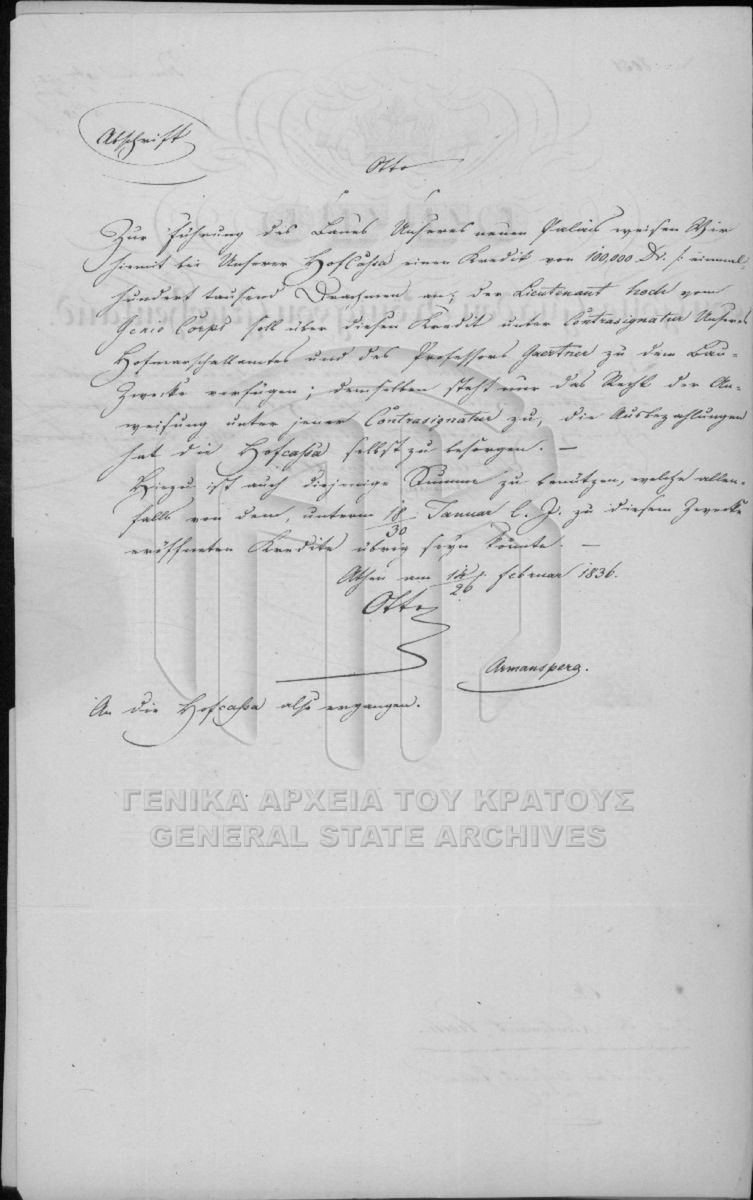 Abschrift
Otto
Zur Führung des Baues Unseres neuen Palais weisen Wir
hiemit bei Unserer HofCassa einen Kredit von 100,000 Dr. /: einmal
hundert tausend Drachmen an; der Lieutenant Hoch vom
Genie Corps soll über diesen Kredit unter Contrasignatur Unseres
Hofmarschallamtes und des Professors Gaertner zu dem Bau-
Zwecke verfügen; demselben steht nur das Recht der An-
weisung unter jener Contrasignatur zu, die Ausbezahlungen
hat die Hofcassa selbst zu besorgen. —
Hiezu ist auch diejenige Summe zu benützen, welche allen-
falls von dem, unterm 18/30 Januar l. J. zu diesem Zwecke
eröffneten Kredite übrig seyn könnte. —
Athen am 14/26 Februar 1836.
Otto
Armansperg.
An die Hofcassa also ergangen.
ΓΕΝΙΚΑ ΑΡΧΕΙΑ ΤΟΥ ΚΡΑΤΟΥΣ
GENERAL STATE ARCHIVES